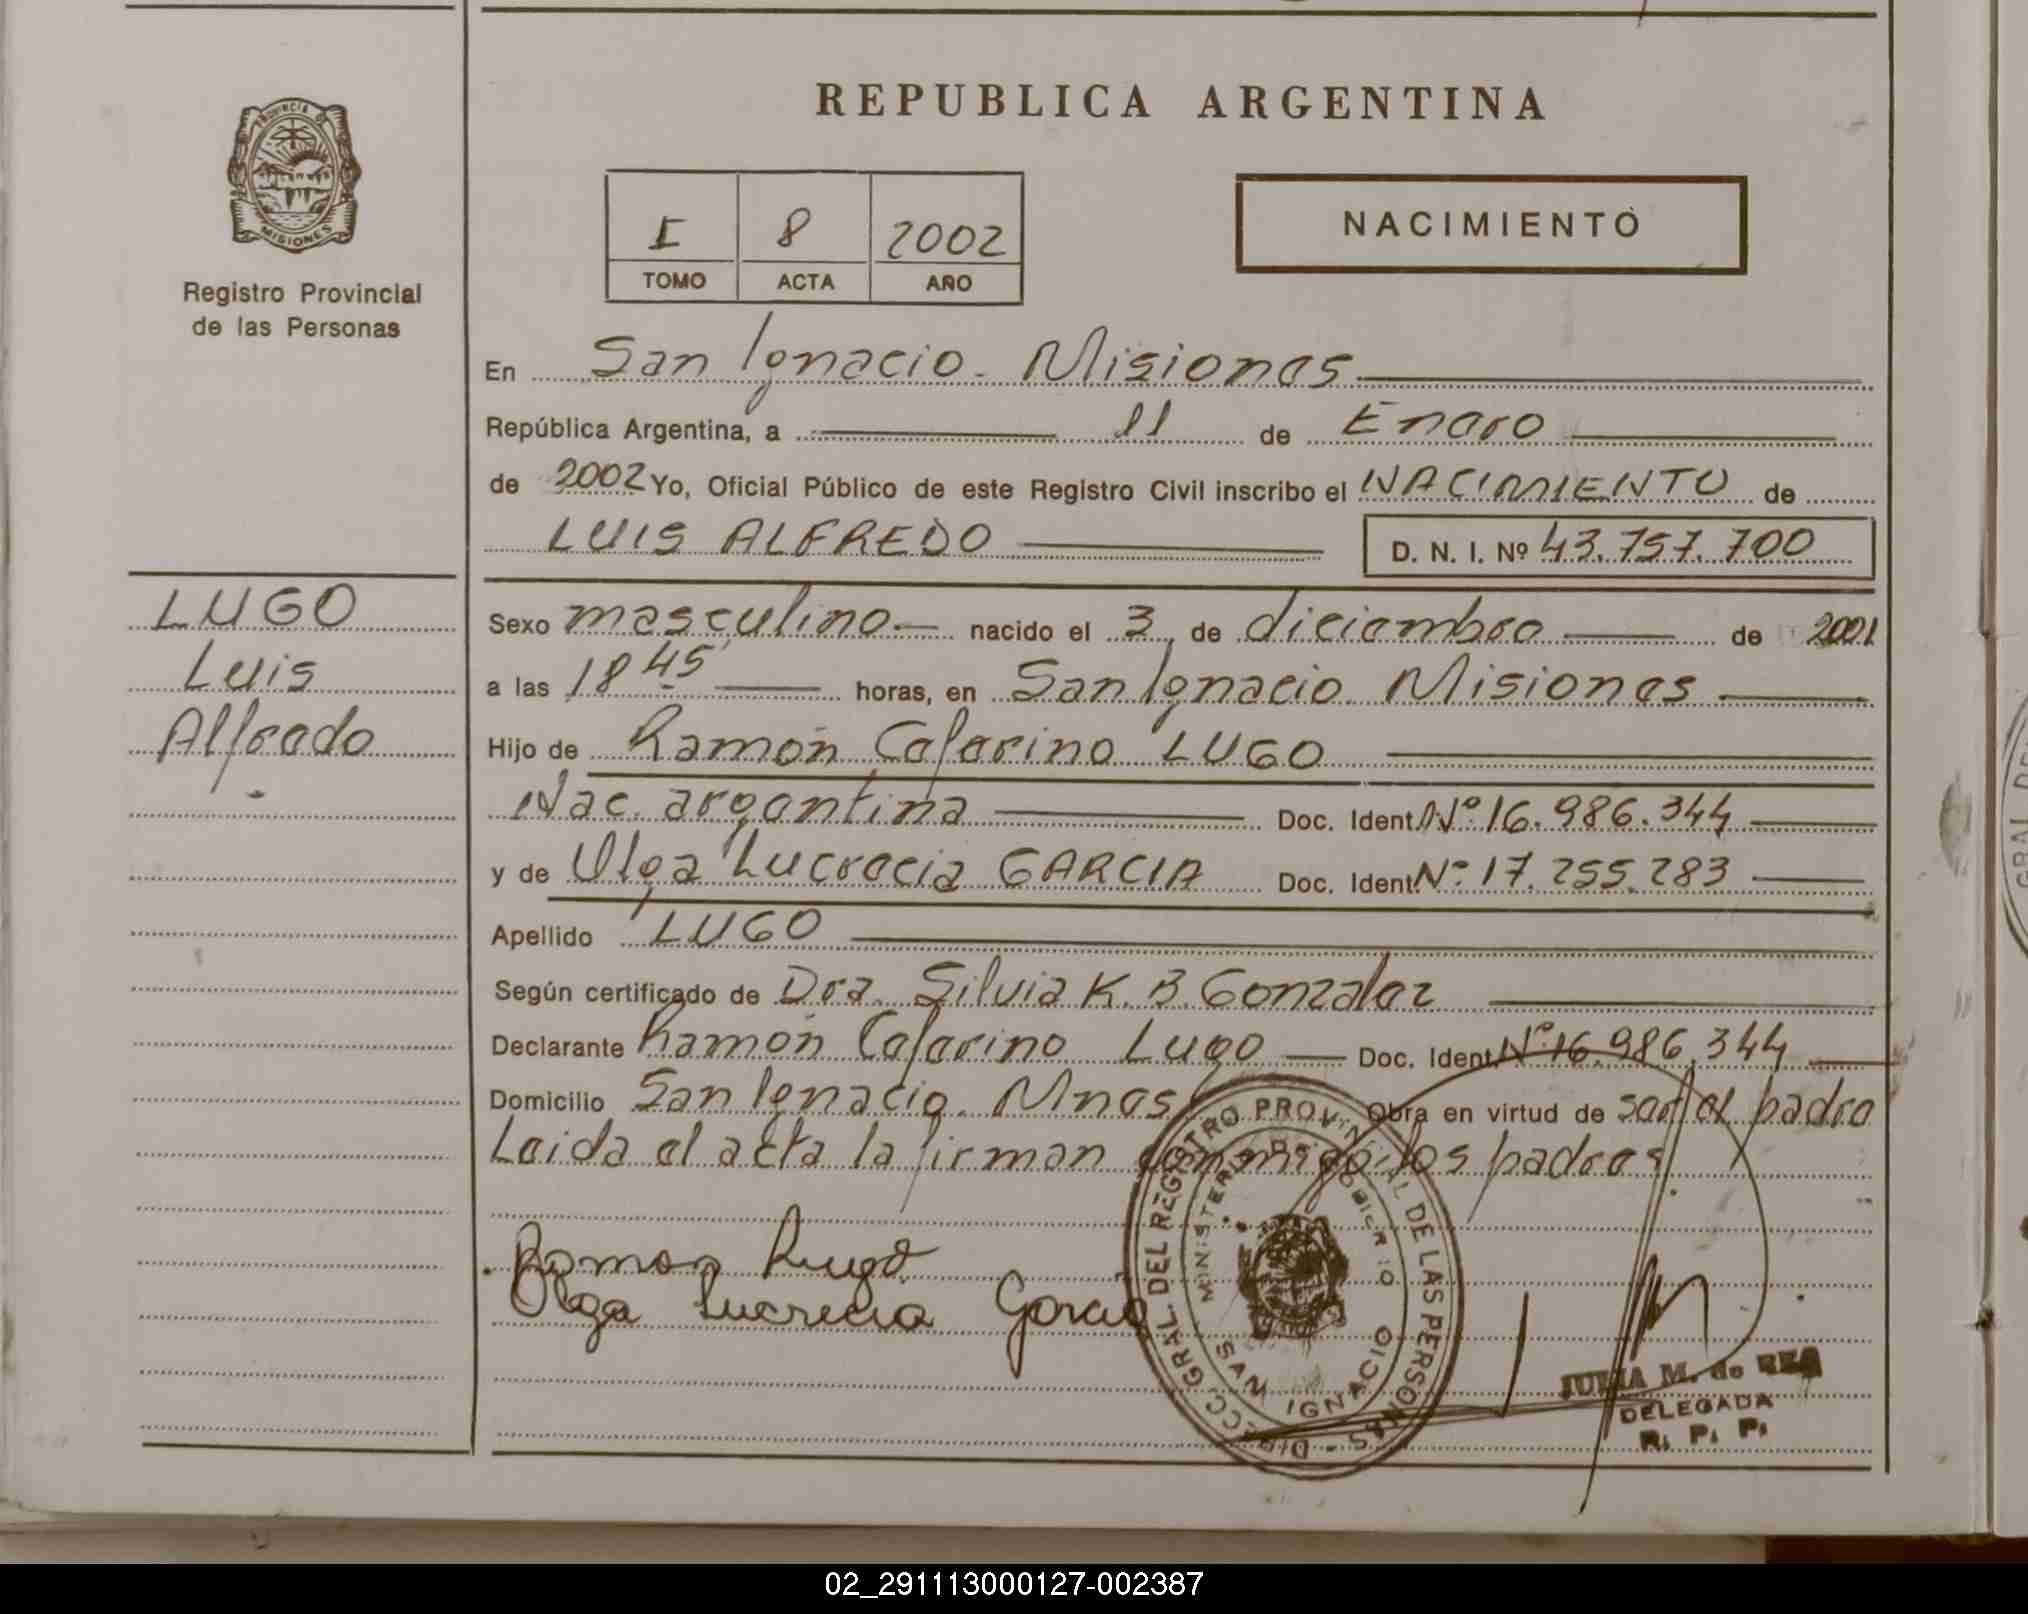 REPUBLICA ARGENTINA
PROVINCIA DE
MISIONES
Registro Provincial
de las Personas
I 8 2002
TOMO ACTA AÑO
NACIMIENTO
En San Ignacio. Misiones
República Argentina, a 11 de Enero
de 2002 Yo, Oficial Público de este Registro Civil inscribo el NACIMIENTO de
LUIS ALFREDO D. N. I. Nº 43.757.700
LUGO
Luis
Alfredo
Sexo masculino nacido el 3 de diciembre de 2001
a las 18 45 horas, en San Ignacio. Misiones
Hijo de Ramón Ceferino LUGO
Nac. argentina Doc. Ident. Nº 16.986.344
y de Olga Lucrecia GARCIA Doc. Ident Nº 17.255.283
Apellido LUGO
Según certificado de Dra. Silvia K. B. Gonzalez
Declarante Ramón Ceferino Lugo Doc. Ident. Nº 16.986.344
Domicilio San Ignacio. Mnes Obra en virtud de ser el padre
Leida el acta la firman conmigo los padres
Ramon Lugo
Olga Lucrecia Garcia
DIRECC. GRAL. DEL REGISTRO PROVINCIAL DE LAS PERSONAS
MINISTERIO DE GOBIERNO
SAN IGNACIO
JULIA M. de REA
DELEGADA
R. P. P.
02_291113000127-002387